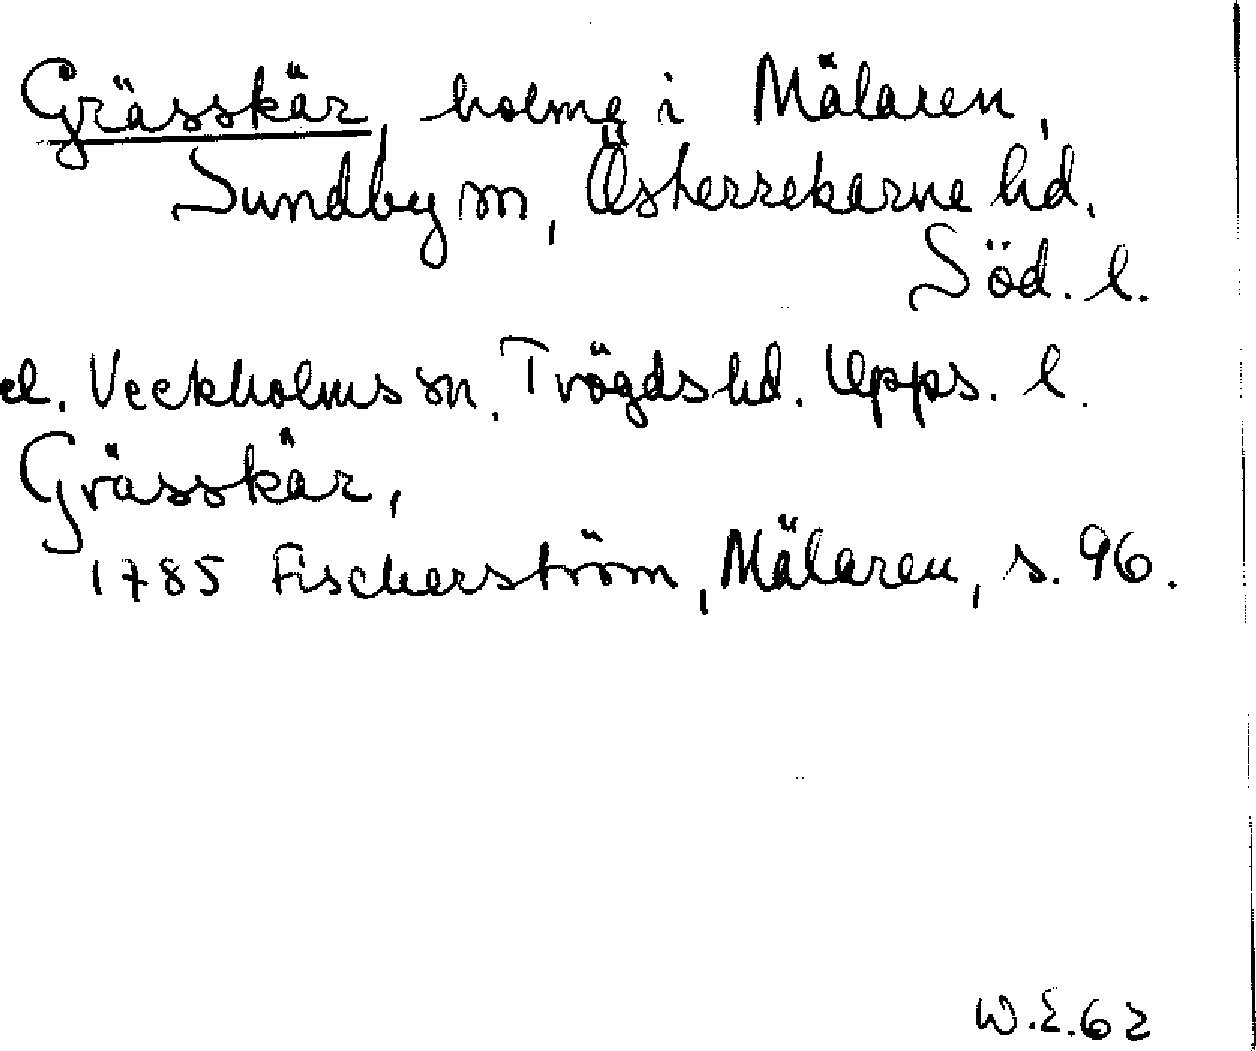 Grässkär, holme i Mälaren,
Sundby sn, Österrekarne hd.
Söd. l.
el. Veckholms sn. Trögds hd. Upps. l.
Grässkär,
1785 Fischerström, Mälaren, s. 96.
W.E.62